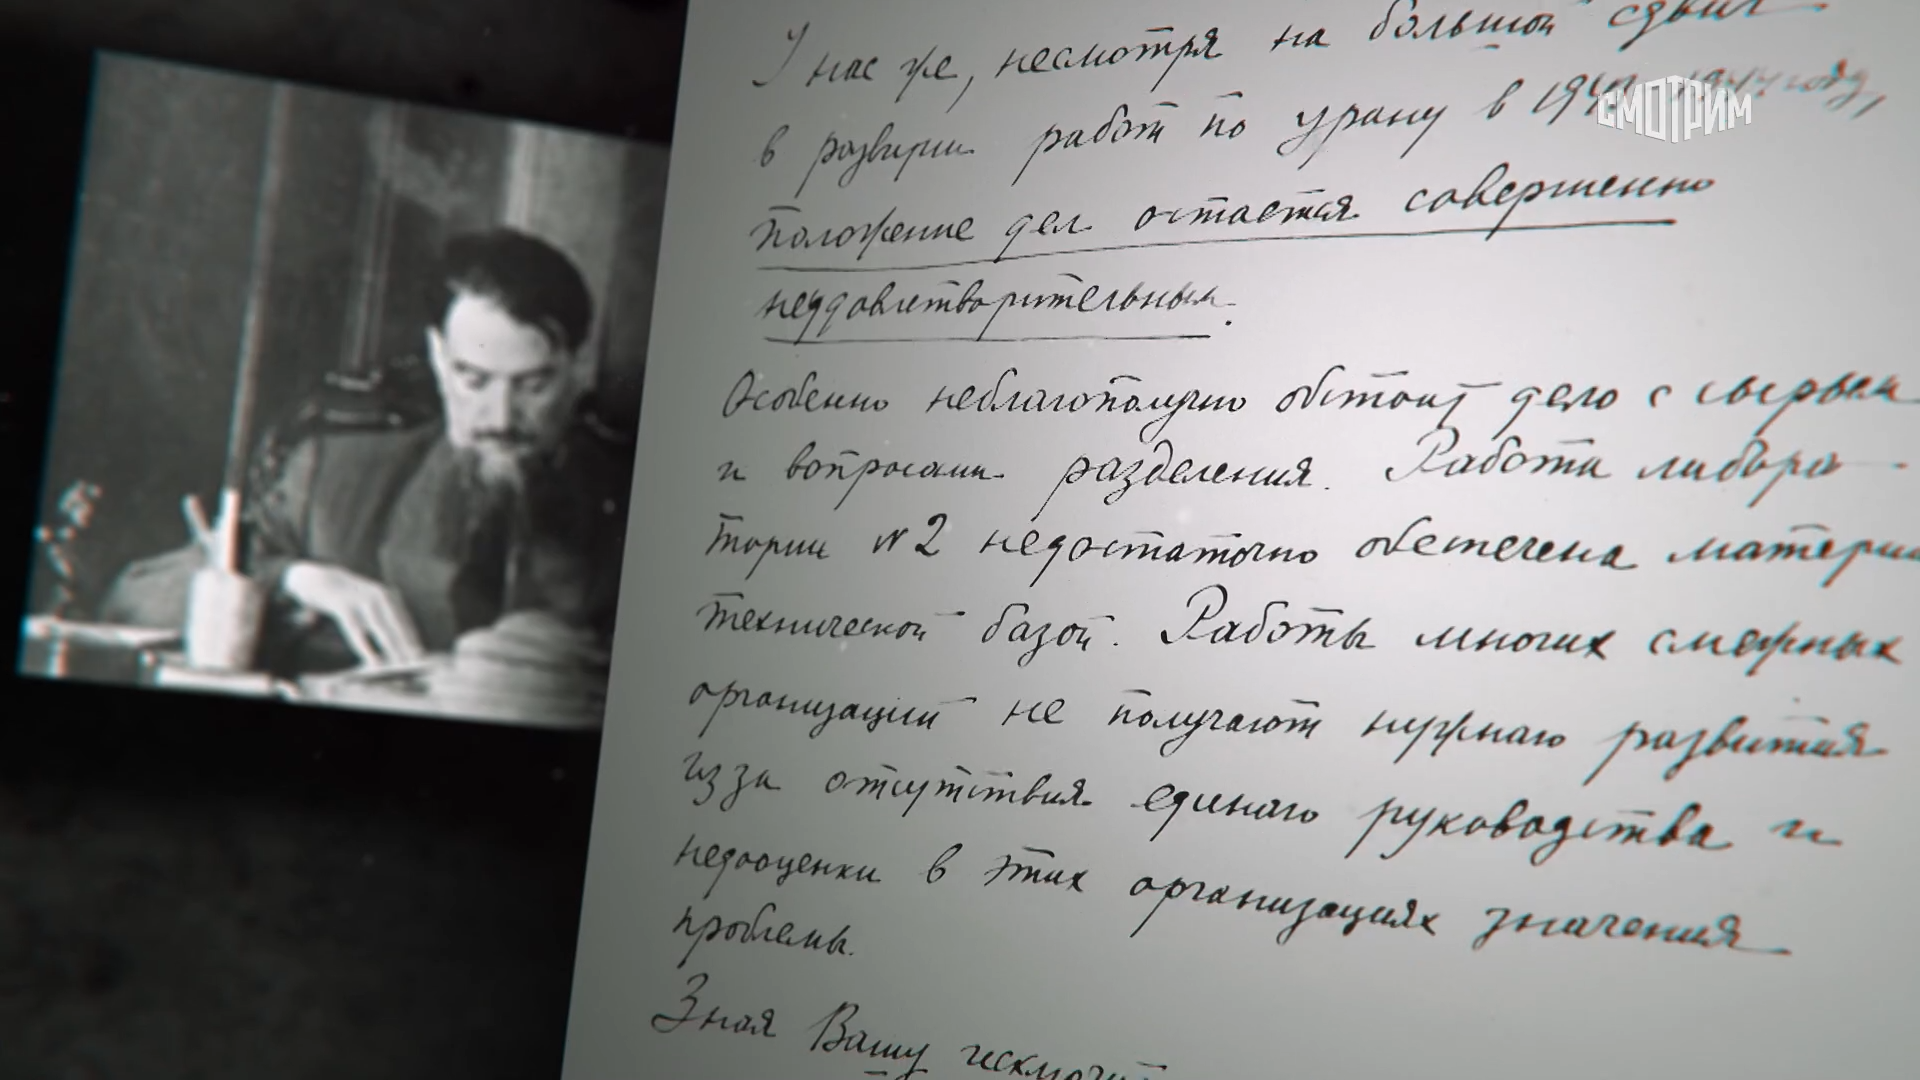 У нас же, несмотря на большой сдвиг
в развитии работ по урану в 1943-1944 году,
положение дел остается совершенно
неудовлетворительным.
Особенно неблагополучно обстоит дело с сырьем
и вопросами разделения. Работа лабора-
тории №2 недостаточно обеспечена матери
технической базой. Работы многих смежных
организаций не получают нужного развития
из за отсутствия единого руководства и
недооценки в этих организациях значения
проблемы.
Зная Вашу исключит
СМОТРИМ